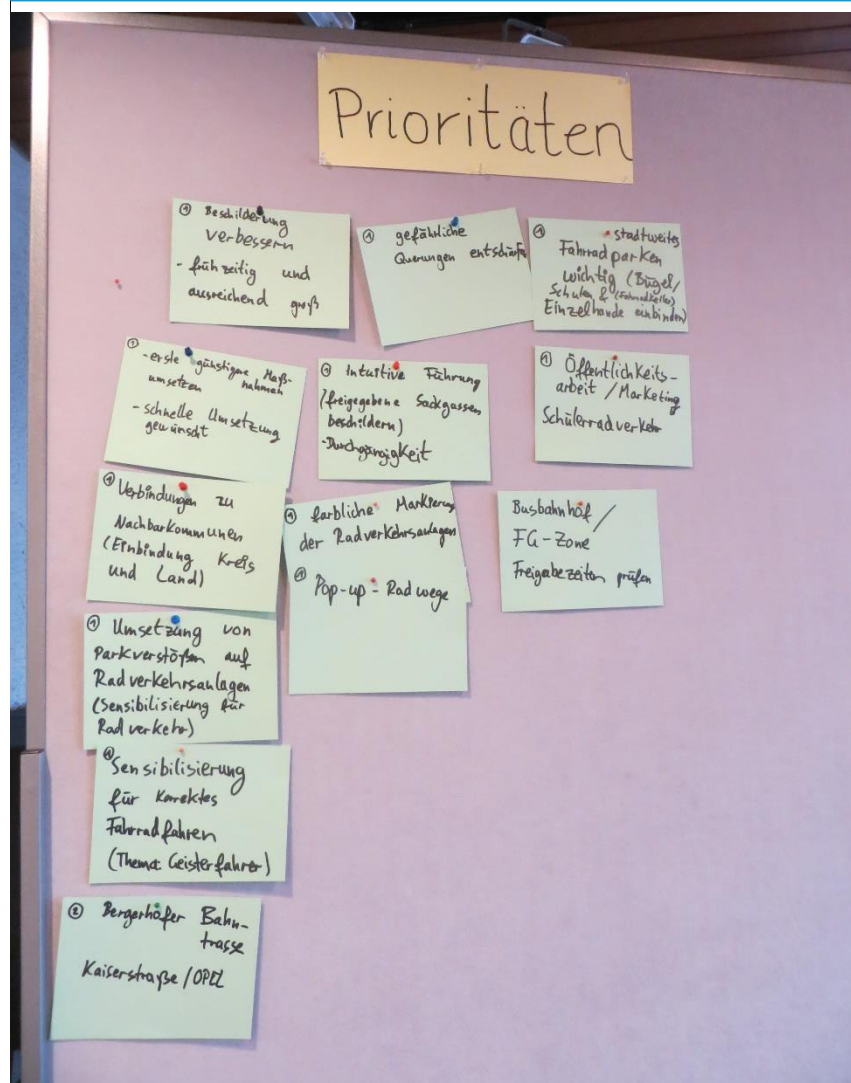 Prioritäten
① Beschilderung
verbessern
- frühzeitig und
ausreichend groß
① gefährliche
Querungen entschärfen
① stadtweites
Fahrradparken
wichtig (Bügel/
Schulen & (Fahrradkeller)
Einzelhande einbinden)
①
- erste günstigere Maß-
umsetzen nahmen
- schnelle Umsetzung
gewünscht
① Intuitive Führung
(freigegebene Sackgassen
beschildern)
- Durchgängigkeit
① Öffentlichkeits-
arbeit / Marketing
Schülerradverkehr
① Verbindungen zu
Nachbarkommunen
(Einbindung Kreis
und Land)
① farbliche Markierung
der Radverkehrsanlagen
① Pop-up-Radwege
Busbahnhof /
FG-Zone
Freigabezeiten prüfen
① Umsetzung von
Parkverstößen auf
Radverkehrsanlagen
(Sensibilisierung für
Radverkehr)
① Sensibilisierung
für korrektes
Fahrradfahren
(Thema: Geisterfahrer)
② Bergerhöfer Bahn-
trasse
Kaiserstraße / OPEL